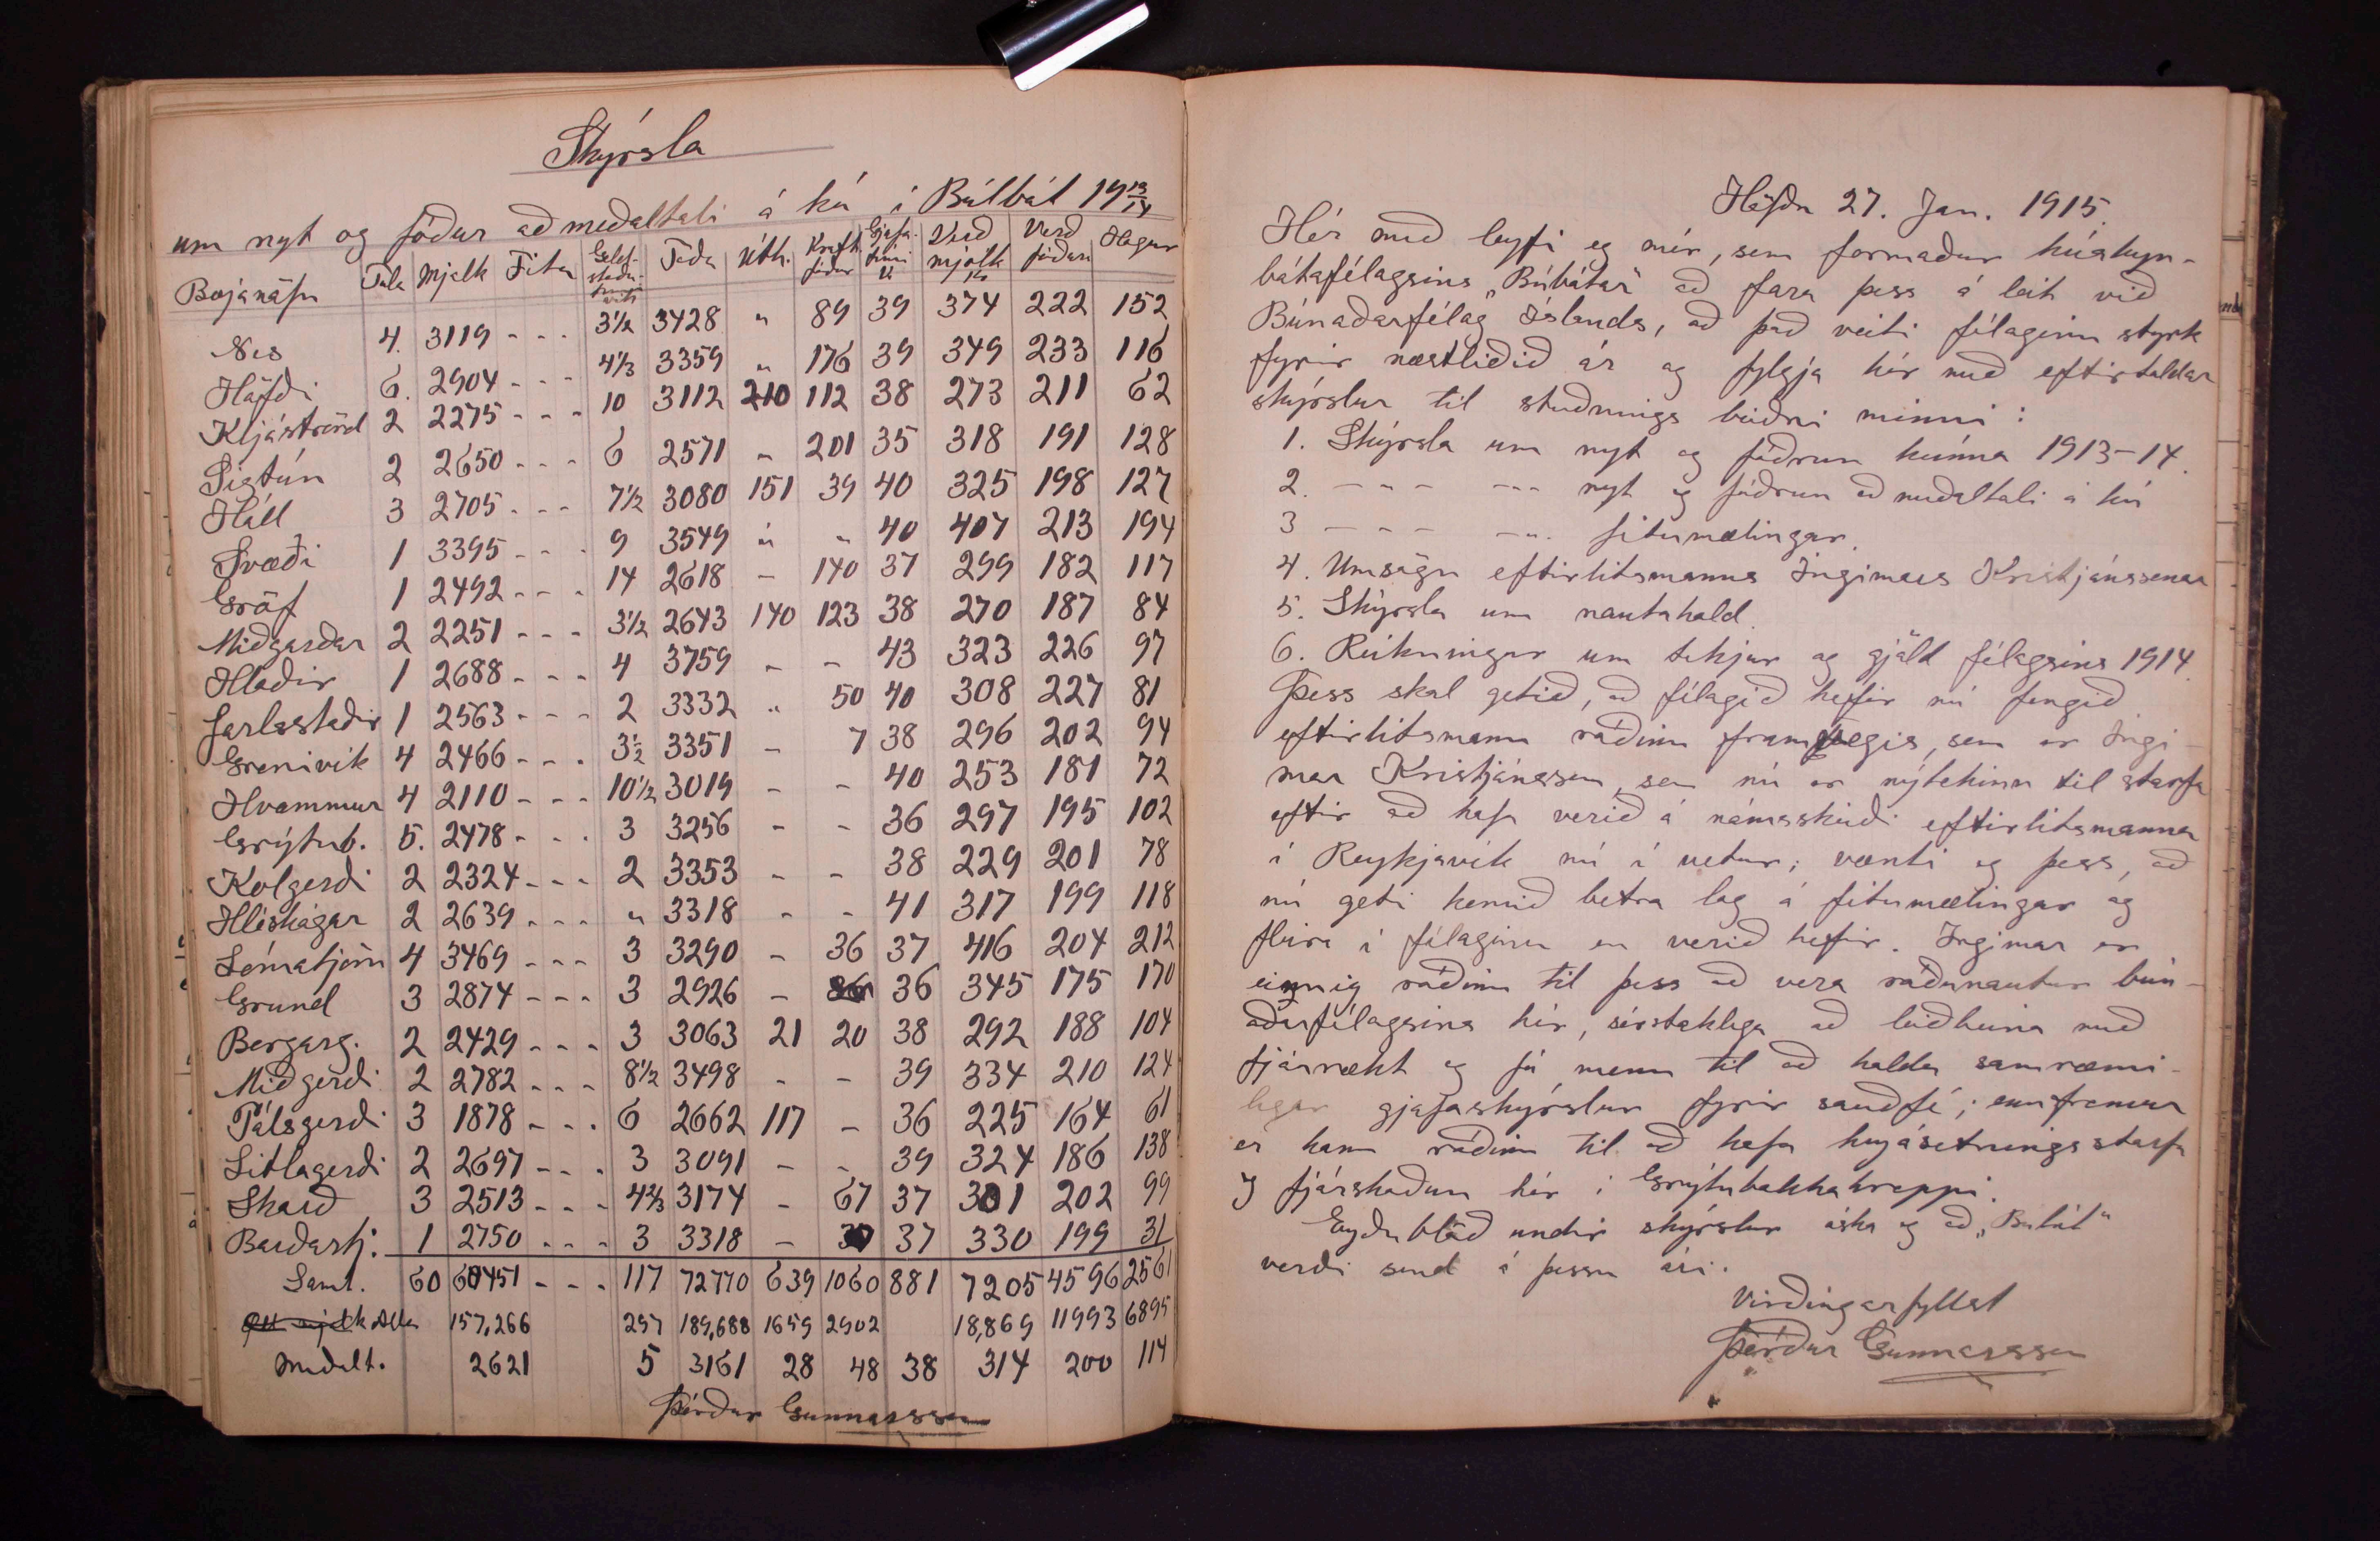 Skýrsla
um nyt og fóður að meðaltali á kú í Búlbát 19 13/14
Bæjanöfn Tala Mjólk Fita Geld-stöðu-tími vik. Taða Úth. Kraft fóður Gjafa-tími v. Verð mjólk kr Verð fóðurs Hagur
Nes 4. 3119 - - - 3½ 3428 " 89 39 374 222 152
Höfði 6. 2904 - - - 4⅓ 3359 " 176 39 349 233 116
Kljáströnd 2 2275 - - - 10 3112 210 112 38 273 211 62
Sigtún 2 2650 - - - 6 2571 " 201 35 318 191 128
Háll 3 2705 - - - 7½ 3080 151 39 40 325 198 127
Svæði 1 3395 - - - 9 3549 " " 40 407 213 194
Gröf 1 2492 - - - 14 2618 - 140 37 299 182 117
Miðgarðar 2 2251 - - - 3½ 2643 140 123 38 270 187 84
Hlaðir 1 2688 - - - 4 3759 - - 43 323 226 97
Jarlsstaðir 1 2563 - - - 2 3332 " 50 40 308 227 81
Grenivík 4 2466 - - - 3½ 3351 - 7 38 296 202 94
Hvammur 4 2110 - - - 10½ 3019 - - 40 253 181 72
Grýtub. 5. 2478 - - - 3 3256 - - 36 297 195 102
Kolgerði 2 2324 - - - 2 3353 - - 38 229 201 78
Hléskógar 2 2639 - - - " 3318 - - 41 317 199 118
Lómatjörn 4 3469 - - - 3 3290 - 36 37 416 204 212
Grund 3 2874 - - - 3 2926 - 36 345 175 170
Bergarg. 2 2429 - - - 3 3063 21 20 38 292 188 104
Miðgerði 2 2782 - - - 8½ 3498 - - 39 334 210 124
Pálsgerði 3 1878 - - - 6 2662 117 - 36 225 164 61
Litlagerði 2 2697 - - - 3 3091 - - 39 324 186 138
Skarð 3 2513 - - - 4⅔ 3174 - 67 37 301 202 99
Barðastj. 1 2750 - - - 3 3318 - 37 330 199 31
Samt. 60 60451 - - - 117 72770 639 1060 881 7205 4596 2561
Alls 157,266 257 189,688 1659 2902 18,869 11993 6895
Meðalt. 2621 5 3161 28 48 38 314 200 114
Þórður Gunnarsson
Höfða 27. Jan. 1915.
Hér með leyfi eg mér, sem formaður kúakyn-
bótafélagsins „Búbótar" að fara þess á leit við
Búnaðarfélag Íslands, að það veiti félaginu styrk
fyrir næstliðið ár og fylgja hér með eftirtaldar
skýrslur til stuðnings beiðni minni:
1. Skýrsla um nyt og fóðrun kúnna 1913-14.
2. - " - - " - nyt og fóðrun að meðaltali á kú
3 - " - - " - fitumælingar.
4. Umsögn eftirlitsmanns Ingimars Kristjánssonar
5. Skýrsla um nautahald.
6. Reikningur um tekjur og gjöld félagsins 1914.
Þess skal getið, að félagið hefir nú fengið
eftirlitsmann ráðinn framvegis, sem er Ingi-
mar Kristjánsson, sem nú er nýtekinn til starfa
eftir að hafa verið á námsskeiði eftirlitsmanna
í Reykjavík nú í vetur; vænti eg þess, að
nú geti komið betra lag á fitumælingar og
fleira í félaginu en verið hefir. Ingimar er
einnig ráðinn til þess að vera ráðunautur bún-
aðarfélagsins hér, sérstaklega að leiðbeina með
fjárrækt og fá menn til að halda samræmi-
legar gjafaskýrslur fyrir sauðfé; ennfremur
er hann ráðinn til að hafa heyásetningsstarf
og fjárskoðun hér í Grýtubakkahreppi.
Eyðublöð undir skýrslur óska eg að „Búbót"
verði send á þessu ári.
Virðingarfyllst
Þórður Gunnarsson